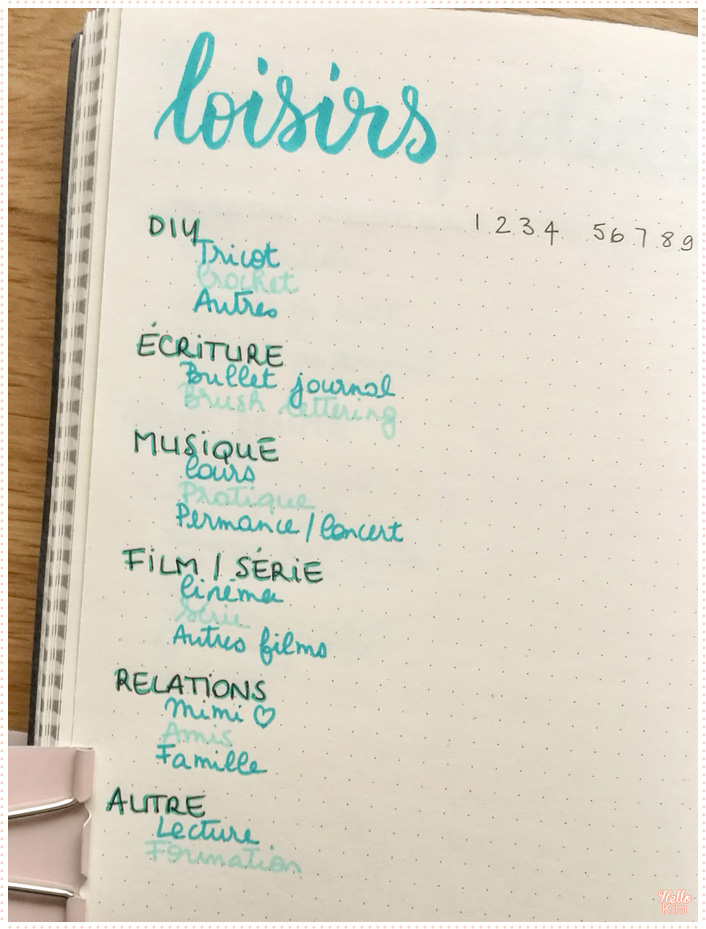 loisirs
1 2 3 4 5 6 7 8 9
DIY
Tricot
Crochet
Autres
ÉCRITURE
Bullet journal
Brush lettering
MUSIQUE
Cours
Pratique
Permance / Concert
FILM / SÉRIE
Cinema
Série
Autres films
RELATIONS
Mimi ♡
Amis
Famille
AUTRE
Lecture
Formation
Hello
Kira